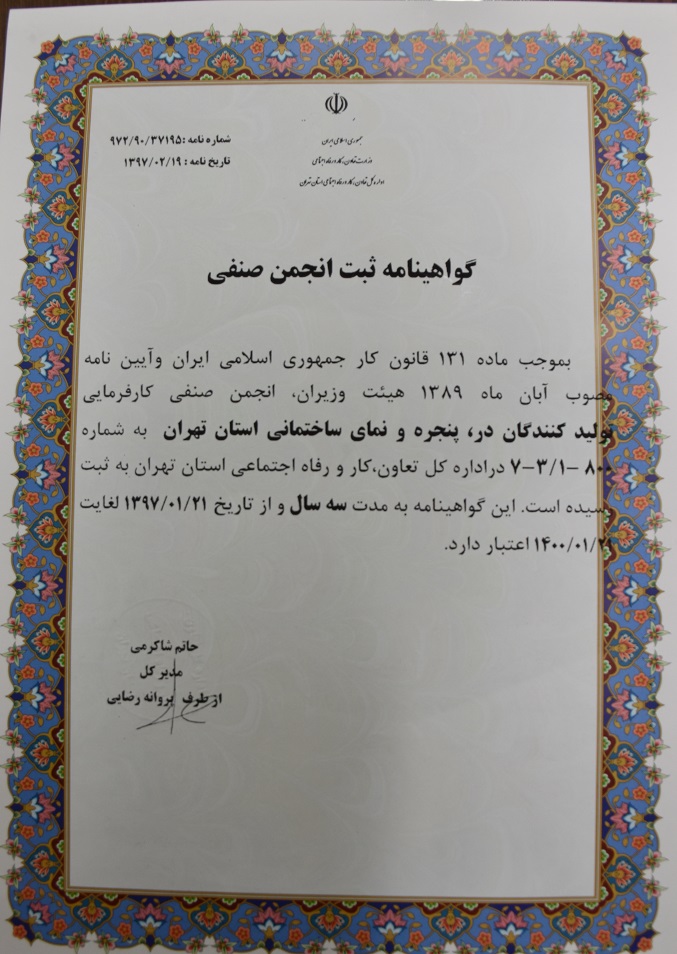 جمهوری اسلامی ایران
وزارت تعاون، کار و رفاه اجتماعی
اداره کل تعاون، کار و رفاه اجتماعی استان تهران
شماره نامه : ۹۷۲/۹۰/۳۷۱۹۵
تاریخ نامه : ۱۳۹۷/۰۲/۱۹
گواهینامه ثبت انجمن صنفی
بموجب ماده ۱۳۱ قانون کار جمهوری اسلامی ایران وآیین نامه
مصوب آبان ماه ۱۳۸۹ هیئت وزیران، انجمن صنفی کارفرمایی
تولید کنندگان در، پنجره و نمای ساختمانی استان تهران به شماره
۸۰۰ –۷-۳/۱ دراداره کل تعاون،کار و رفاه اجتماعی استان تهران به ثبت
رسیده است. این گواهینامه به مدت سه سال و از تاریخ ۱۳۹۷/۰۱/۲۱ لغایت
۱۴۰۰/۰۱/۲۱ اعتبار دارد.
حاتم شاکرمی
مدیر کل
از طرف پروانه رضایی